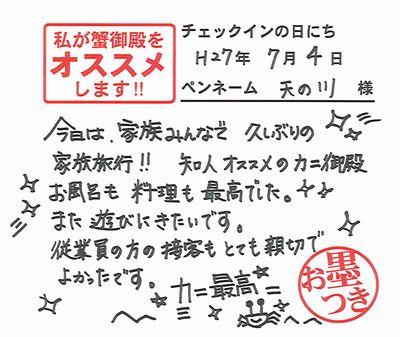 私が蟹御殿を
オススメ
します!!
チェックインの日にち
H27年 7月 4日
ペンネーム 天の川 様
今日は、家族みんなで 久しぶりの
家族旅行!! 知人オススメのカニ御殿
お風呂も 料理も 最高でした。
また 遊びにきたいです。
従業員の方の接客もとても親切で
よかったです。
カニ最高=
お墨つき